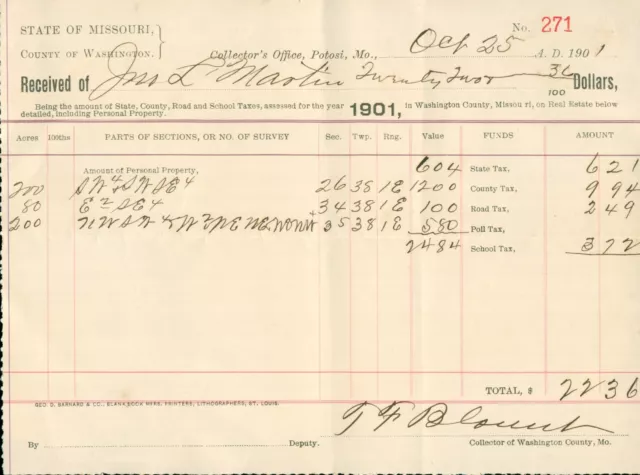 STATE OF MISSOURI,
COUNTY OF WASHINGTON.
No. 271
Collector's Office, Potosi, Mo., Oct 25 A. D. 1901
Received of Jno L Martin Twenty Two 36/100 Dollars,
Being the amount of State, County, Road and School Taxes, assessed for the year 1901, in Washington County, Missouri, on Real Estate below
detailed, including Personal Property.
Acres 100ths PARTS OF SECTIONS, OR NO. OF SURVEY Sec. Twp. Rng. Value FUNDS AMOUNT
Amount of Personal Property, 604 State Tax, 621
200 SW4 & SW SE4 26 38 1E 1200 County Tax, 994
80 E2 SE4 34 38 1E 100 Road Tax, 249
200 NW SW & W2 NE 35 38 1E 580 Poll Tax,
2484 School Tax, 372
TOTAL, $ 2236
GEO. D. BARNARD & CO., BLANK BOOK MFRS. PRINTERS, LITHOGRAPHERS, ST. LOUIS.
T F Blount
By Deputy. Collector of Washington County, Mo.